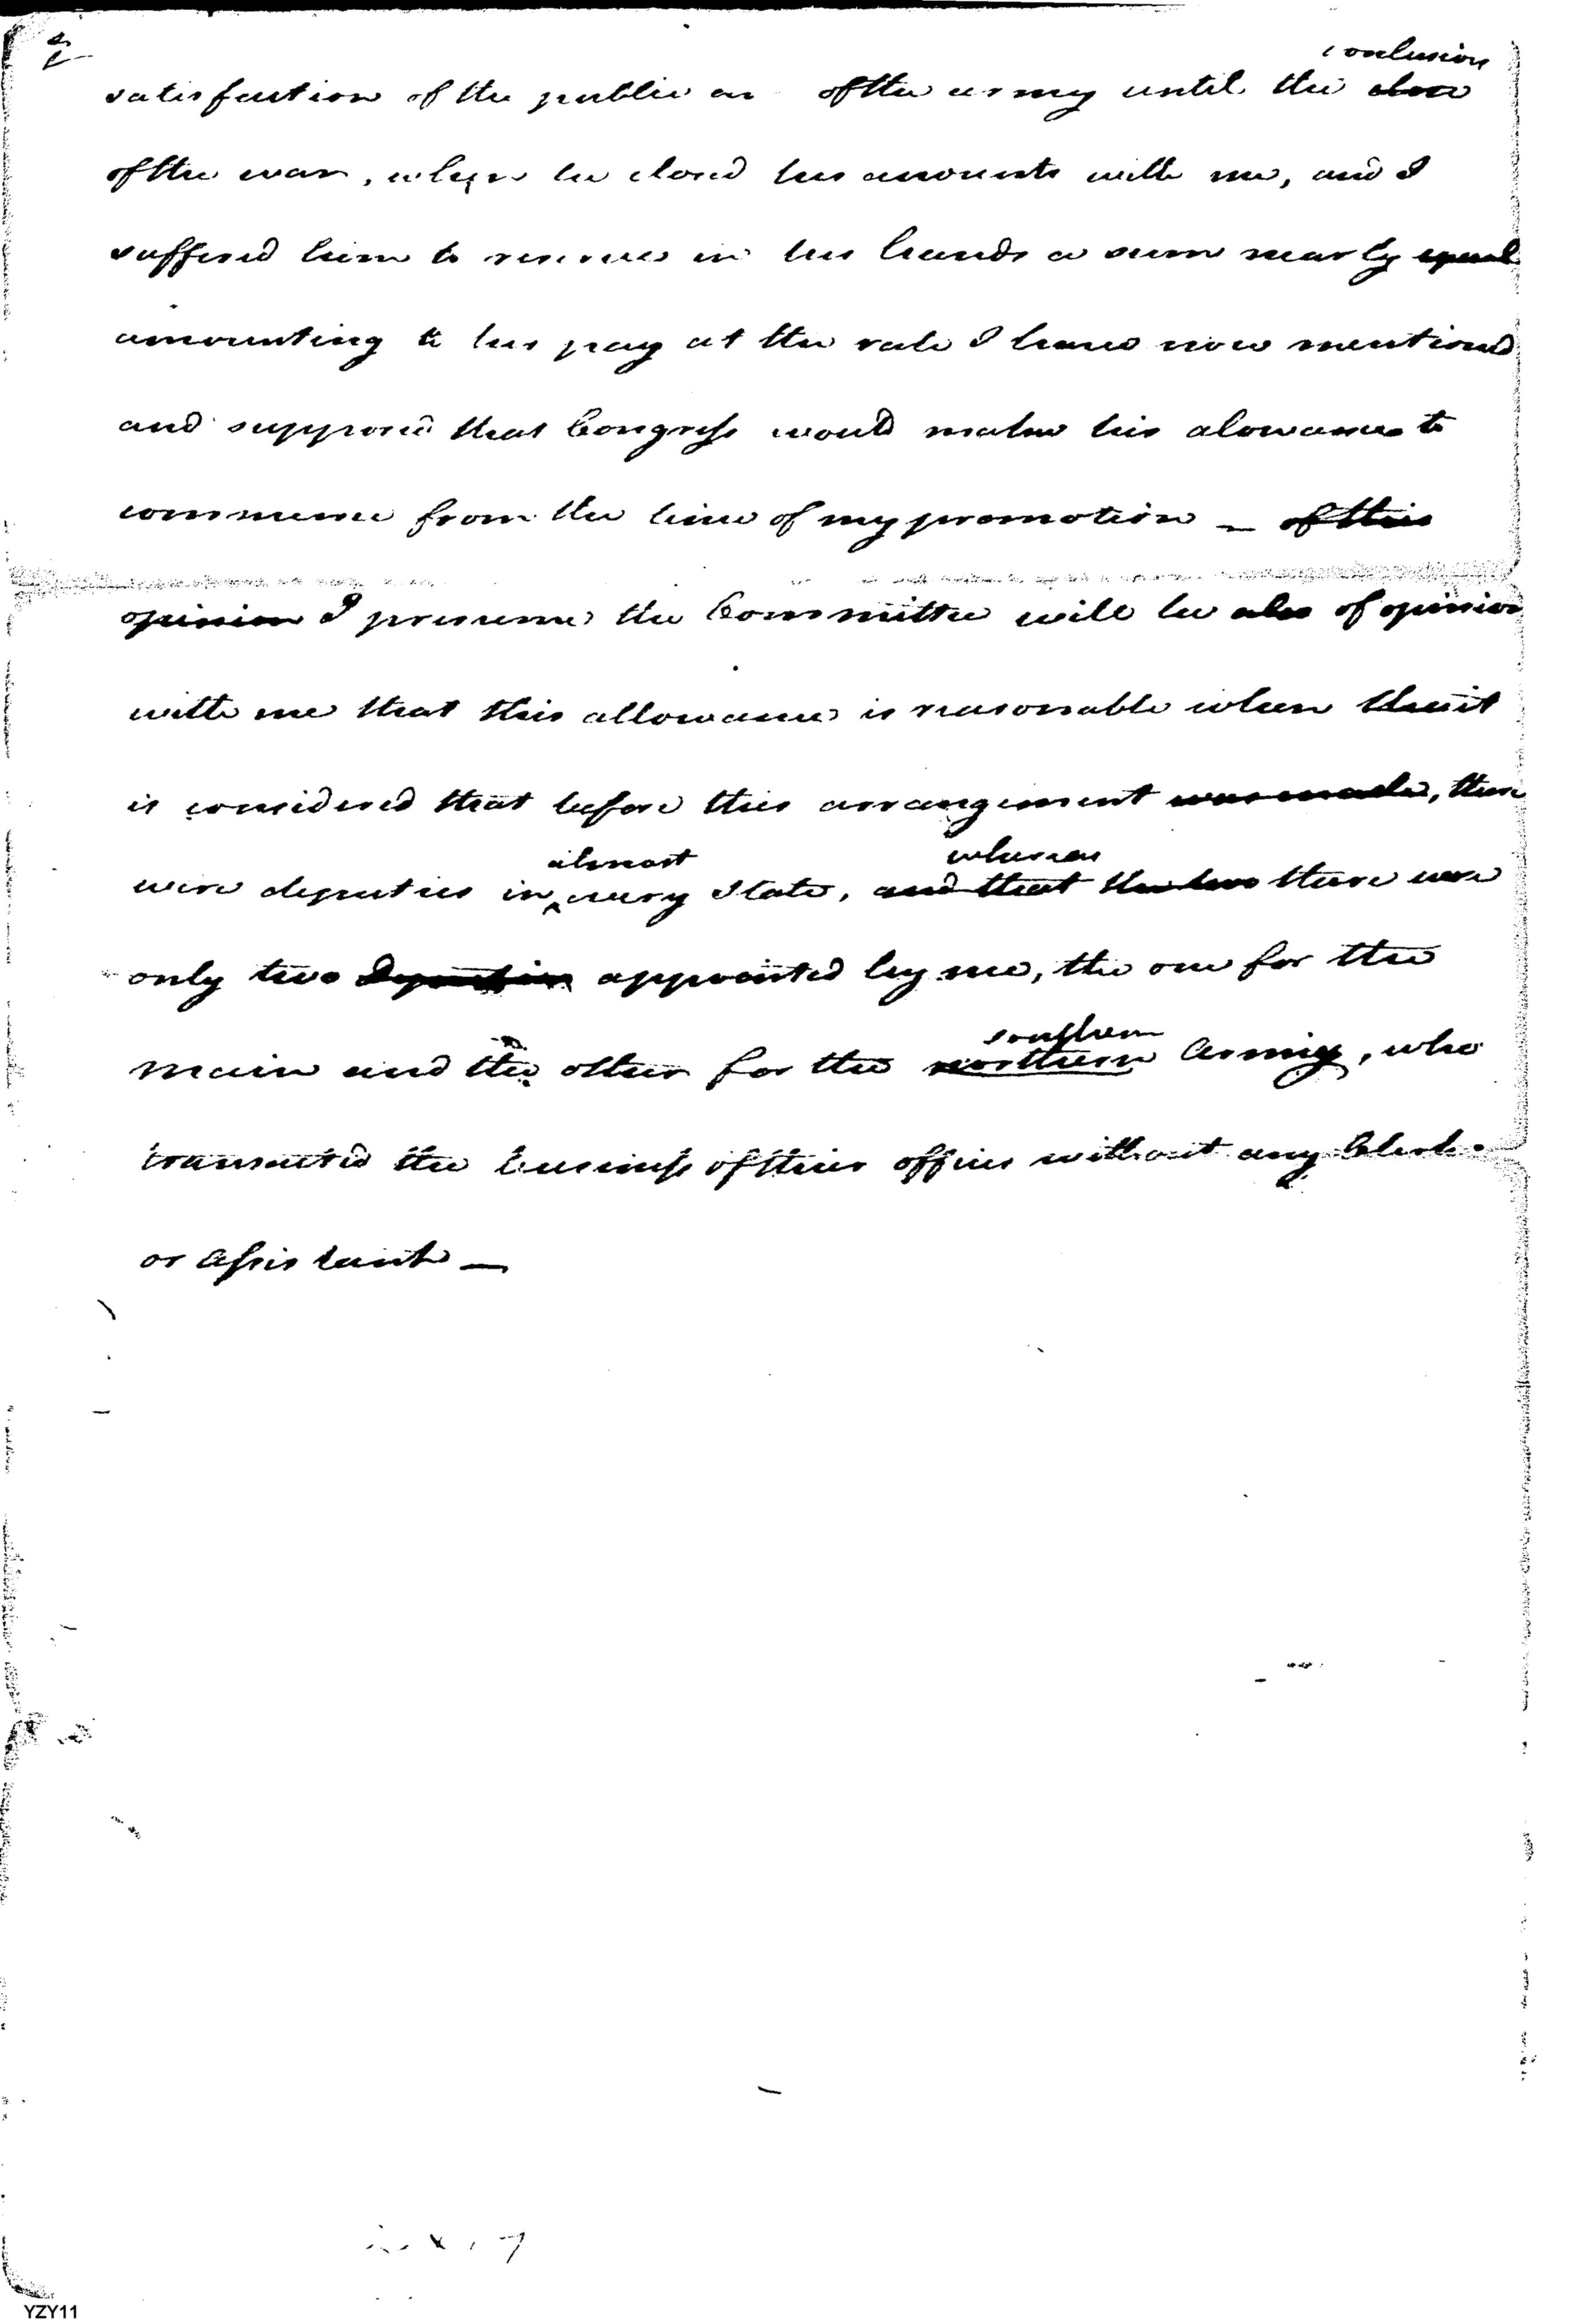 conclusion
satisfaction of the public as of the army until the close
of the war, when he closed his accounts with me, and I
suffered him to reserve in his hands a sum nearly equal
amounting to his pay at the rate I have now mentioned
and supposed that Congress would make his alowance to
commence from the time of my promotion — of this
opinion I presume the Committee will be also of opinion
with me that this allowance is reasonable when it
is considered that before this arrangement was made, there
almost whereas
were deputies in every State, and that the two there were
only two deputies appointed by me, the one for the
southern
main and the other for the northern Army, who
transacted the business of their offices without any Clerk
or Assistant —
YZY11